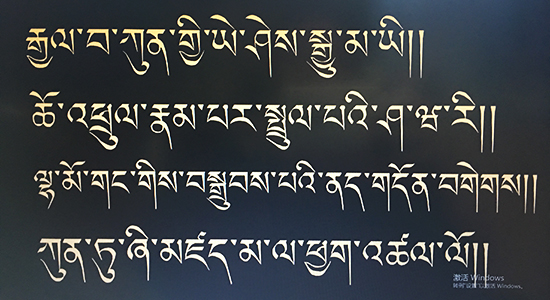 རྒྱལ་བ་ཀུན་གྱི་ཡེ་ཤེས་སྒྱུ་མ་ཡི།།
ཆོ་འཕྲུལ་རྣམ་པར་སྤྲུལ་པའི་ཤ་ཝ་རི།།
ལྷ་མོ་གང་གིས་བསྒྲུབས་པའི་ནད་གདོན་བགེགས།།
ཀུན་ཏུ་ཞི་མཛད་མ་ལ་ཕྱག་འཚལ་ལོ།།
激活 Windows
转到"设置"以激活 Windows。